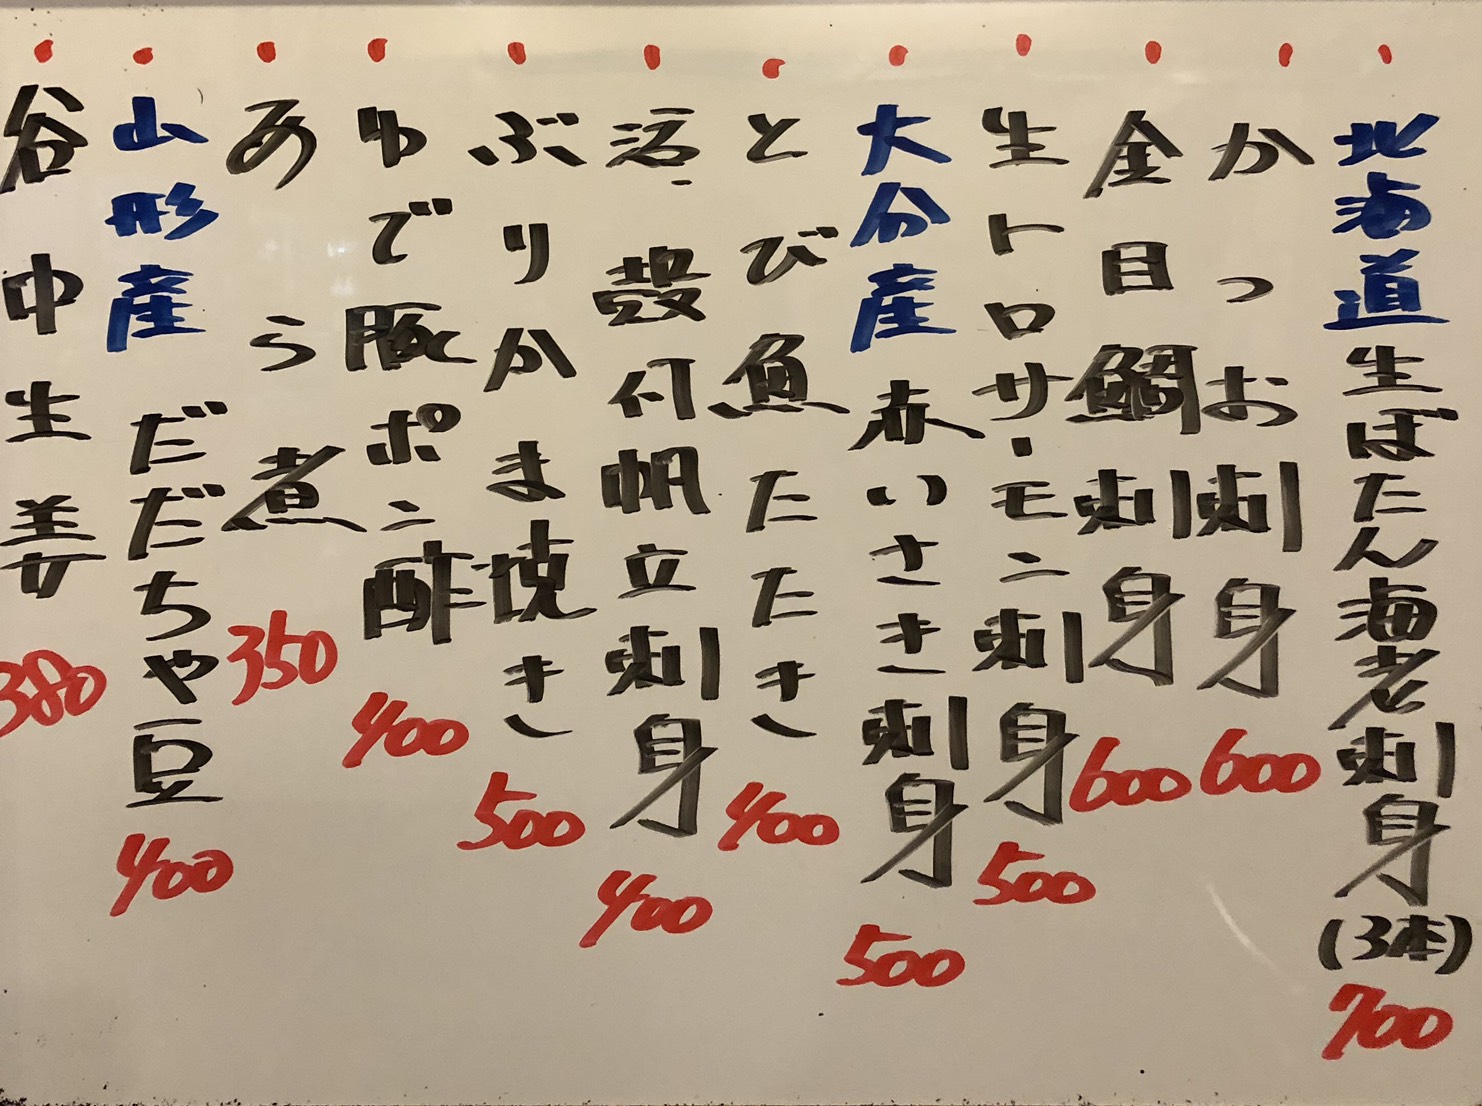 北海道生ぼたん海老刺身(3本)700
かつお刺身600
金目鯛刺身600
生トロサーモン刺身500
大分産赤いさき刺身500
とび魚たたき400
活殻付帆立刺身400
ぶりかま焼き500
ゆで豚ポン酢400
あら煮350
山形産だだちゃ豆400
谷中生姜380